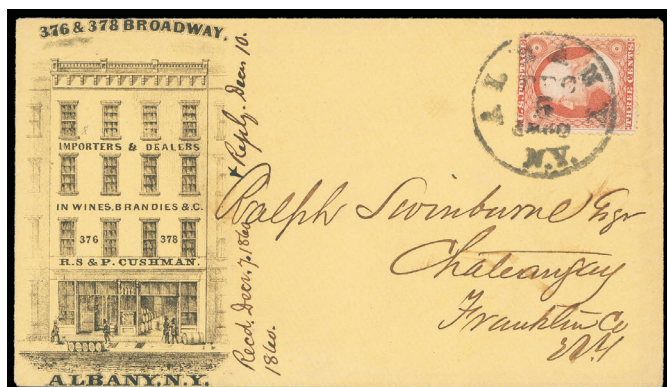 376 & 378 BROADWAY.
IMPORTERS & DEALERS
IN WINES, BRANDIES & C.
376 378
R. S & P. CUSHMAN.
ALBANY, N.Y.
Recd. Decr. 7. 1860 & Reply. Decr. 10.
1860.
U.S. POSTAGE
THREE CENTS
ALBANY
N.Y.
Ralph Swinburne Esqr
Chateaugay
Franklin Co
N.Y